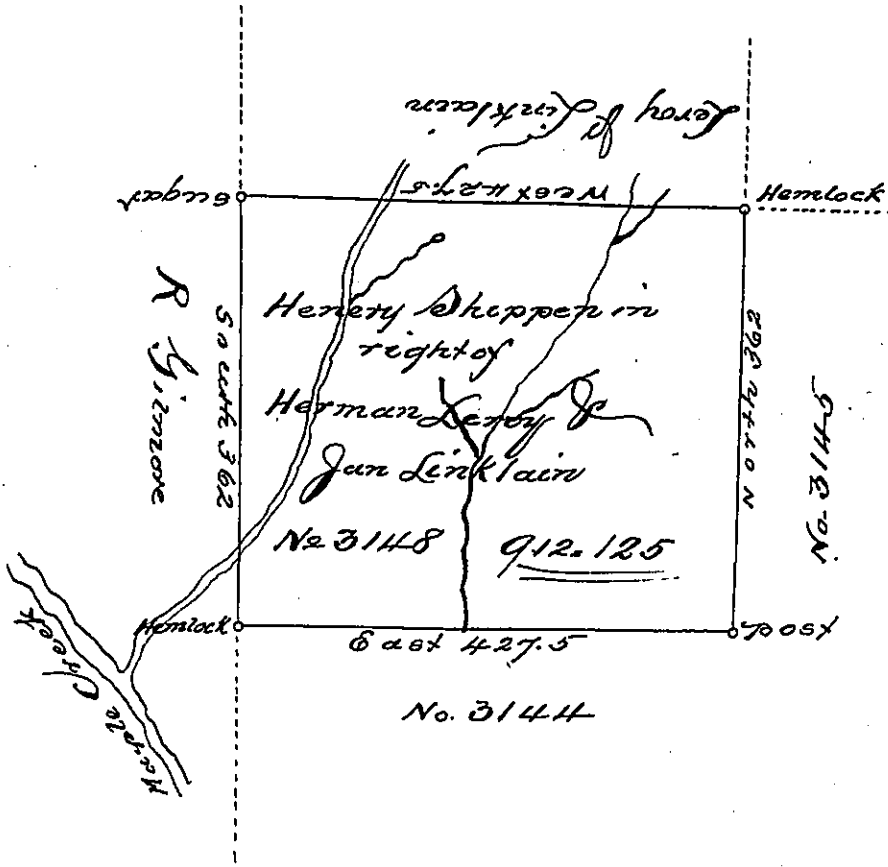 Leroy & Linklain
Sugar
West 427.5
Hemlock
R Gilmore
South 362
Henery Shippen in
right of
Herman Leroy &
Jan Linklain
No 3148 912.125
North 362
No. 3145
Hemlock
East 427.5
Post
Maple Creek
No. 3144